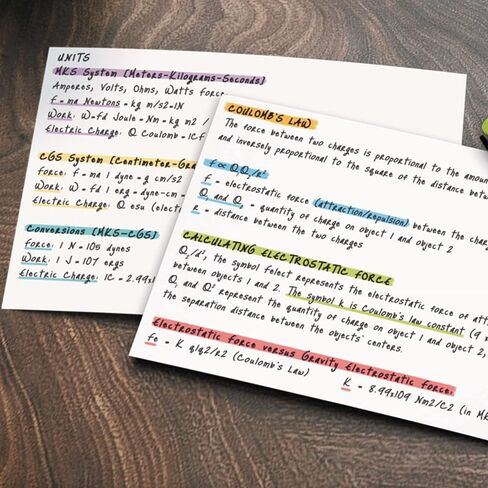 UNITS
MKS System (Meters-Kilograms-Seconds)
Amperes, Volts, Ohms, Watts force:
f = ma Newtons = kg m/s2=1N
Work: W=fd Joule = Nm = kg m2 /
Electric Charge: Q Coulomb = 1C f
CGS System (Centimeter-Gra
force: f = ma 1 dyne = g cm/s2
Work: W = fd 1 erg = dyne-cm =
Electric Charge: Q esu (electr
Conversions (MKS-CGS)
force: 1 N = 105 dynes
Work: 1 J = 107 ergs
Electric Charge: 1C = 2.99x1
COULOMB'S LAW
The force between two charges is proportional to the amou
and inversely proportional to the square of the distance betw
f ∝ Q1Q2/r2
f = electrostatic force (attraction/repulsion) between the char
Q1 and Q2 = quantity of charge on object 1 and object 2
= distance between the two charges
CALCULATING ELECTROSTATIC FORCE
Q2/d2, the symbol felect represents the electrostatic force of att
between objects 1 and 2. The symbol k is Coulomb's law constant (9
Q1 and Q2 represent the quantity of charge on object 1 and object 2,
the separation distance between the objects' centers.
Electrostatic force versus Gravity Electrostatic force:
fe = K q1q2/r2 (Coulomb's Law)
K = 8.99x109 Nm2/C2 (in MK